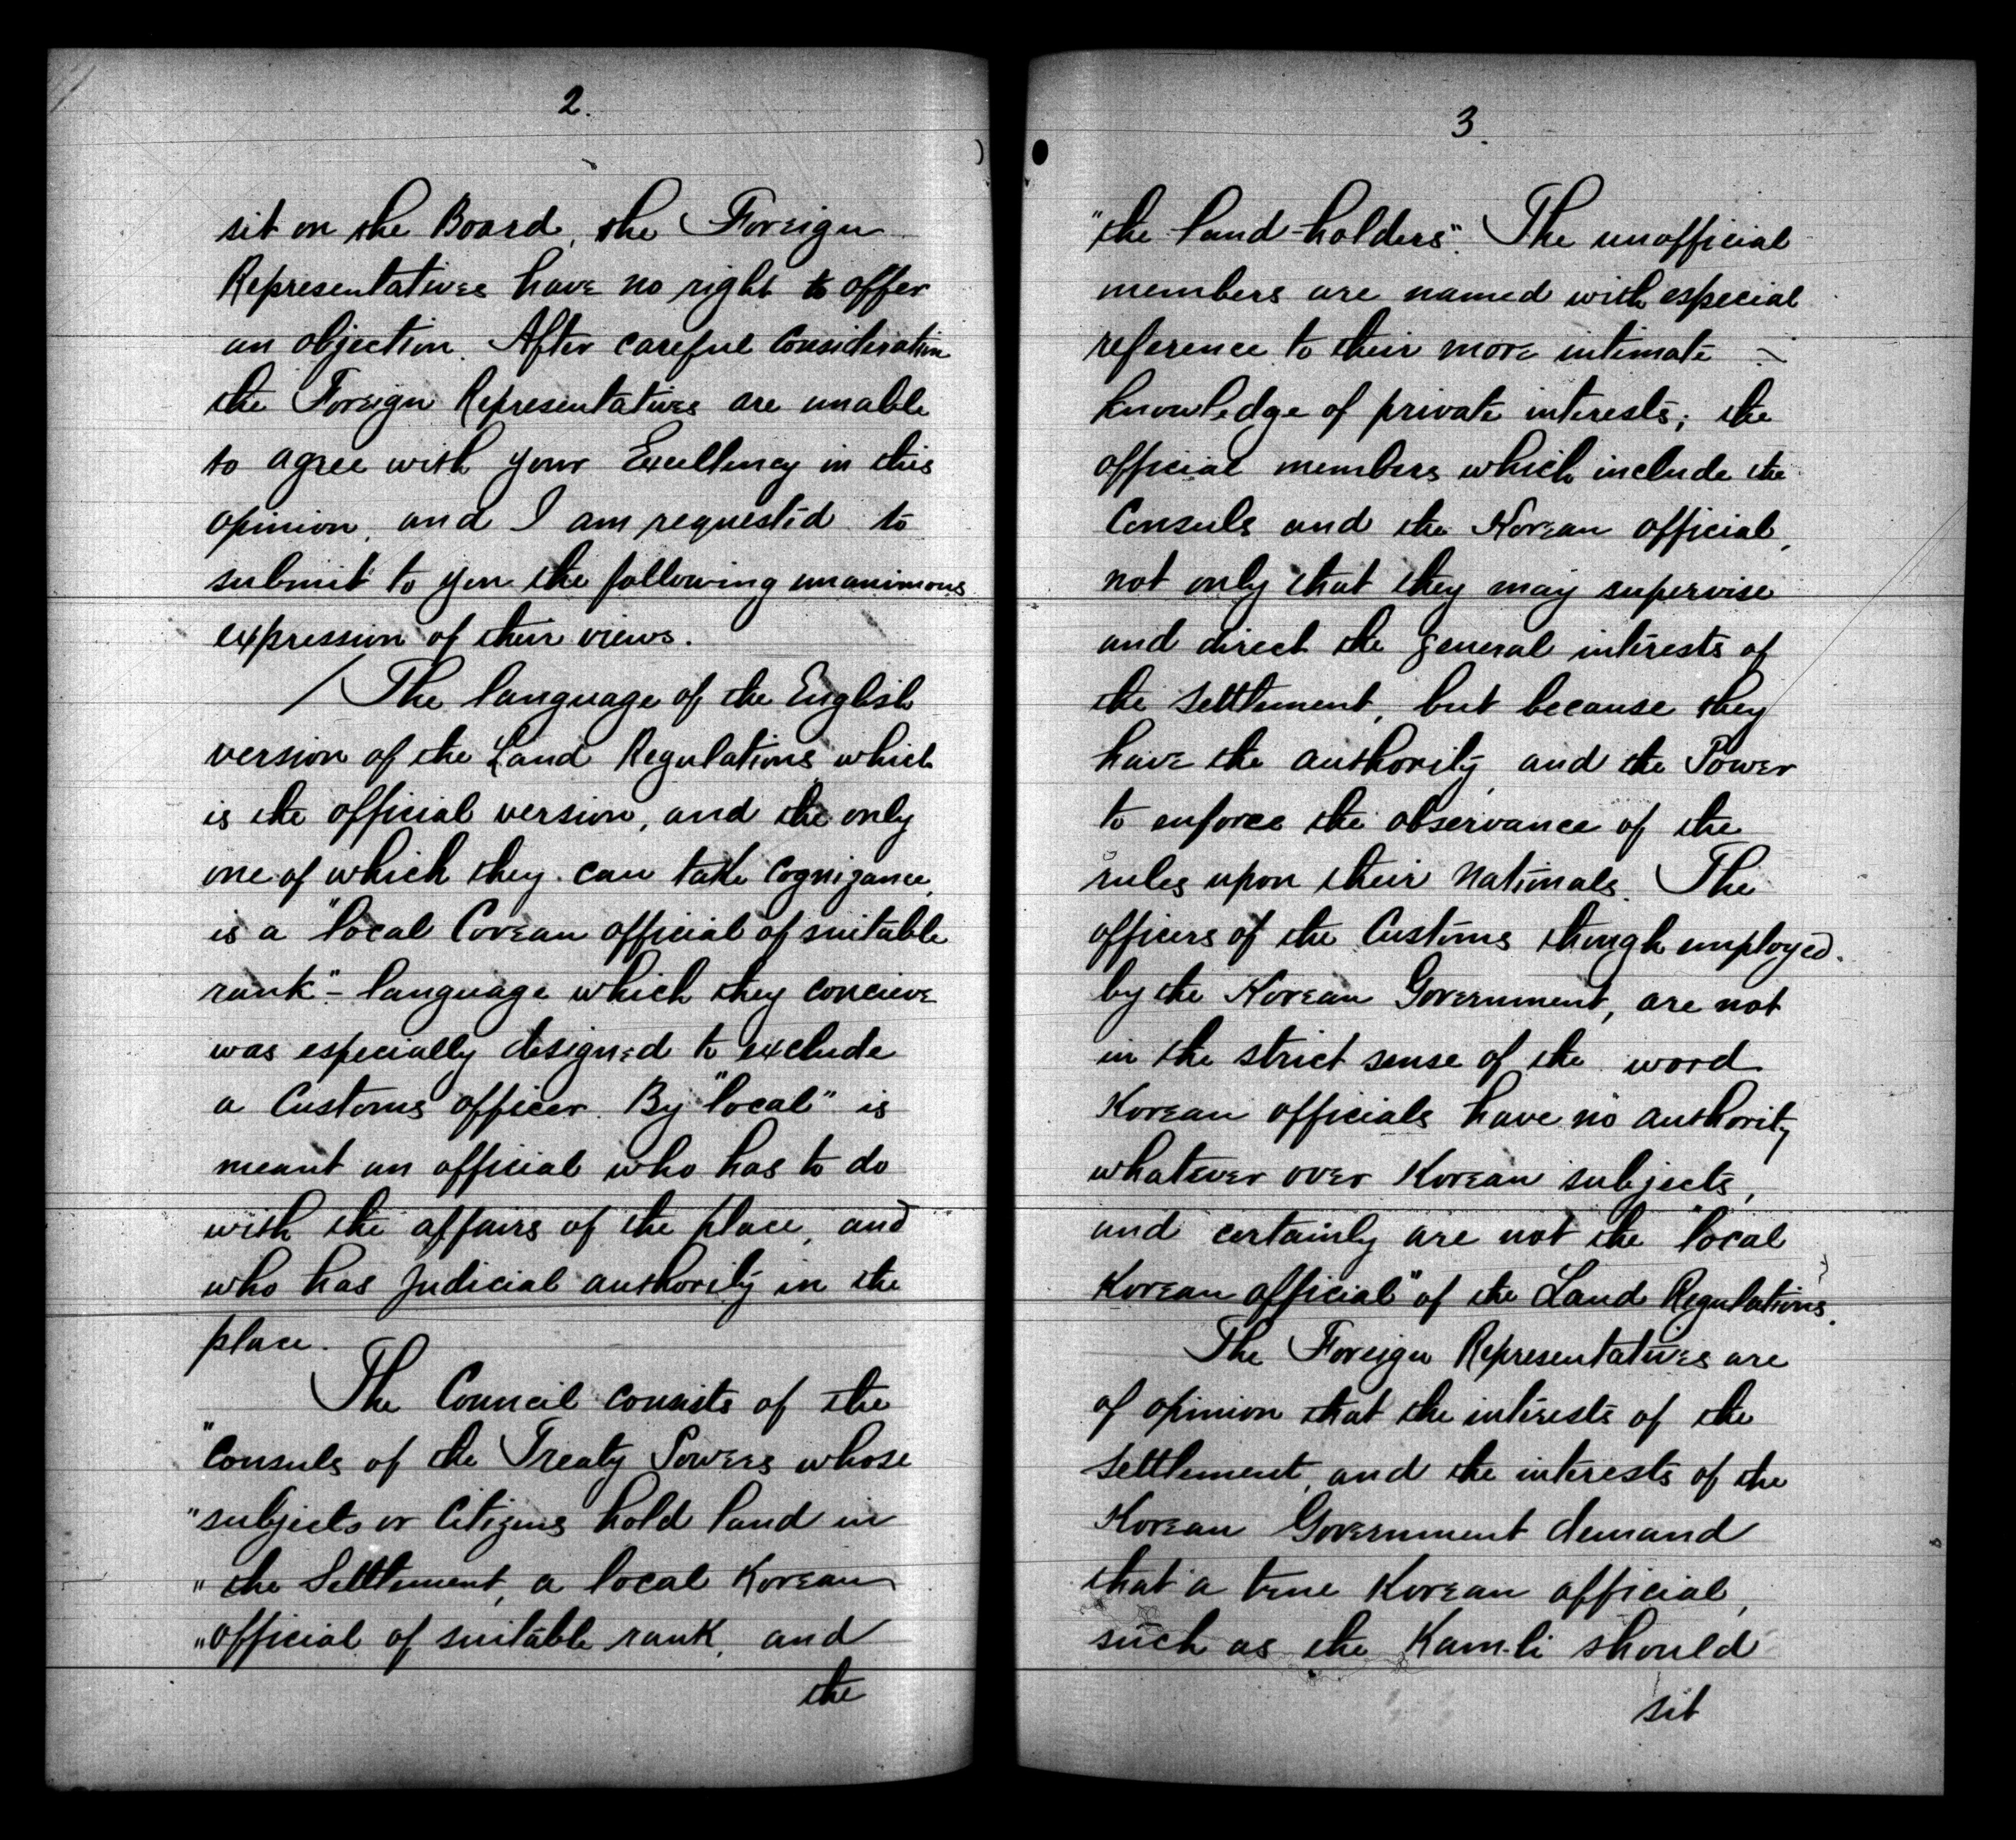 2.
sit on the Board, the Foreign
Representatives have no right to offer
an objection. After careful consideration
the Foreign Representatives are unable
to agree with your Excellency in this
opinion, and I am requested to
submit to you the following unanimous
expression of their views.
/ The language of the English
version of the Land Regulations, which
is the official version, and the only
one of which they can take cognizance,
is a "local Corean official of suitable
rank" - language which they concieve
was especially designed to exclude
a Customs officer. By "local" is
meant an official who has to do
with the affairs of the place, and
who has judicial authority in the
place.
The Council consists of the
"Consuls of the Treaty Powers whose
"subjects or Citizens hold land in
"the Settlement, a local Korean
"official of suitable rank, and
the
3.
"the land-holders". The unofficial
members are named with especial
reference to their more intimate
knowledge of private interests; the
official members which include the
Consuls and the Korean official,
not only that they may supervise
and direct the general interests of
the settlement, but because they
have the authority, and the Power
to enforce the observance of the
rules upon their Nationals. The
officers of the Customs though employed
by the Korean Government, are not
in the strict sense of the word
Korean officials have no authority
whatever over Korean subjects,
and certainly are not the "local
Korean official" of the Land Regulations.
The Foreign Representatives are
of opinion that the interests of the
settlement, and the interests of the
Korean Government demand
that a true Korean official,
such as the Kam-li should
sit